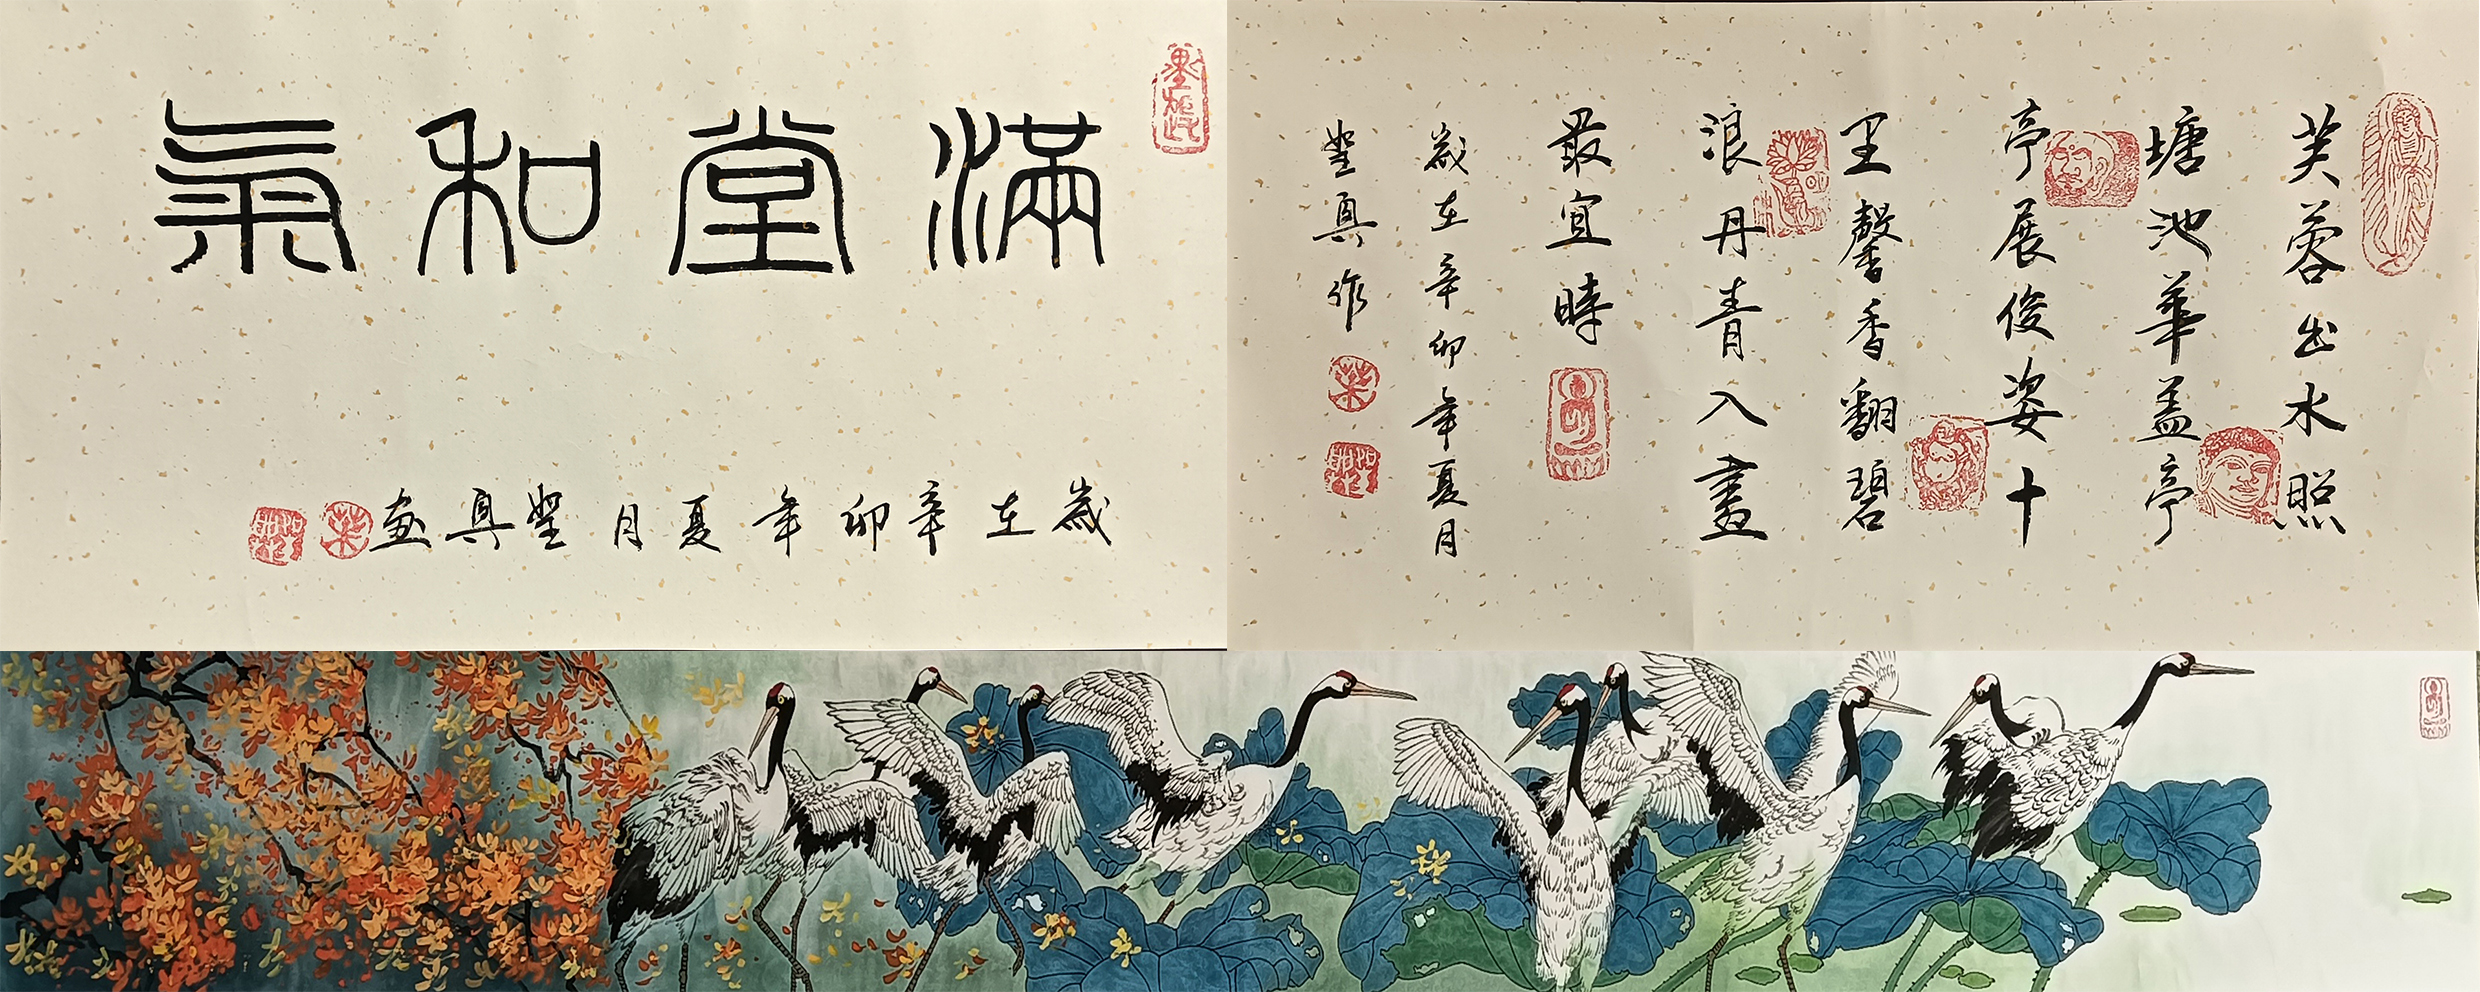 滿堂和氣
歲在辛卯年夏月真画
芙蓉出水照
塘池華蓋亭
亭展俊姿十
里馨香翻碧
浪丹青入畫
最宜時
歲在辛卯年夏月
真作